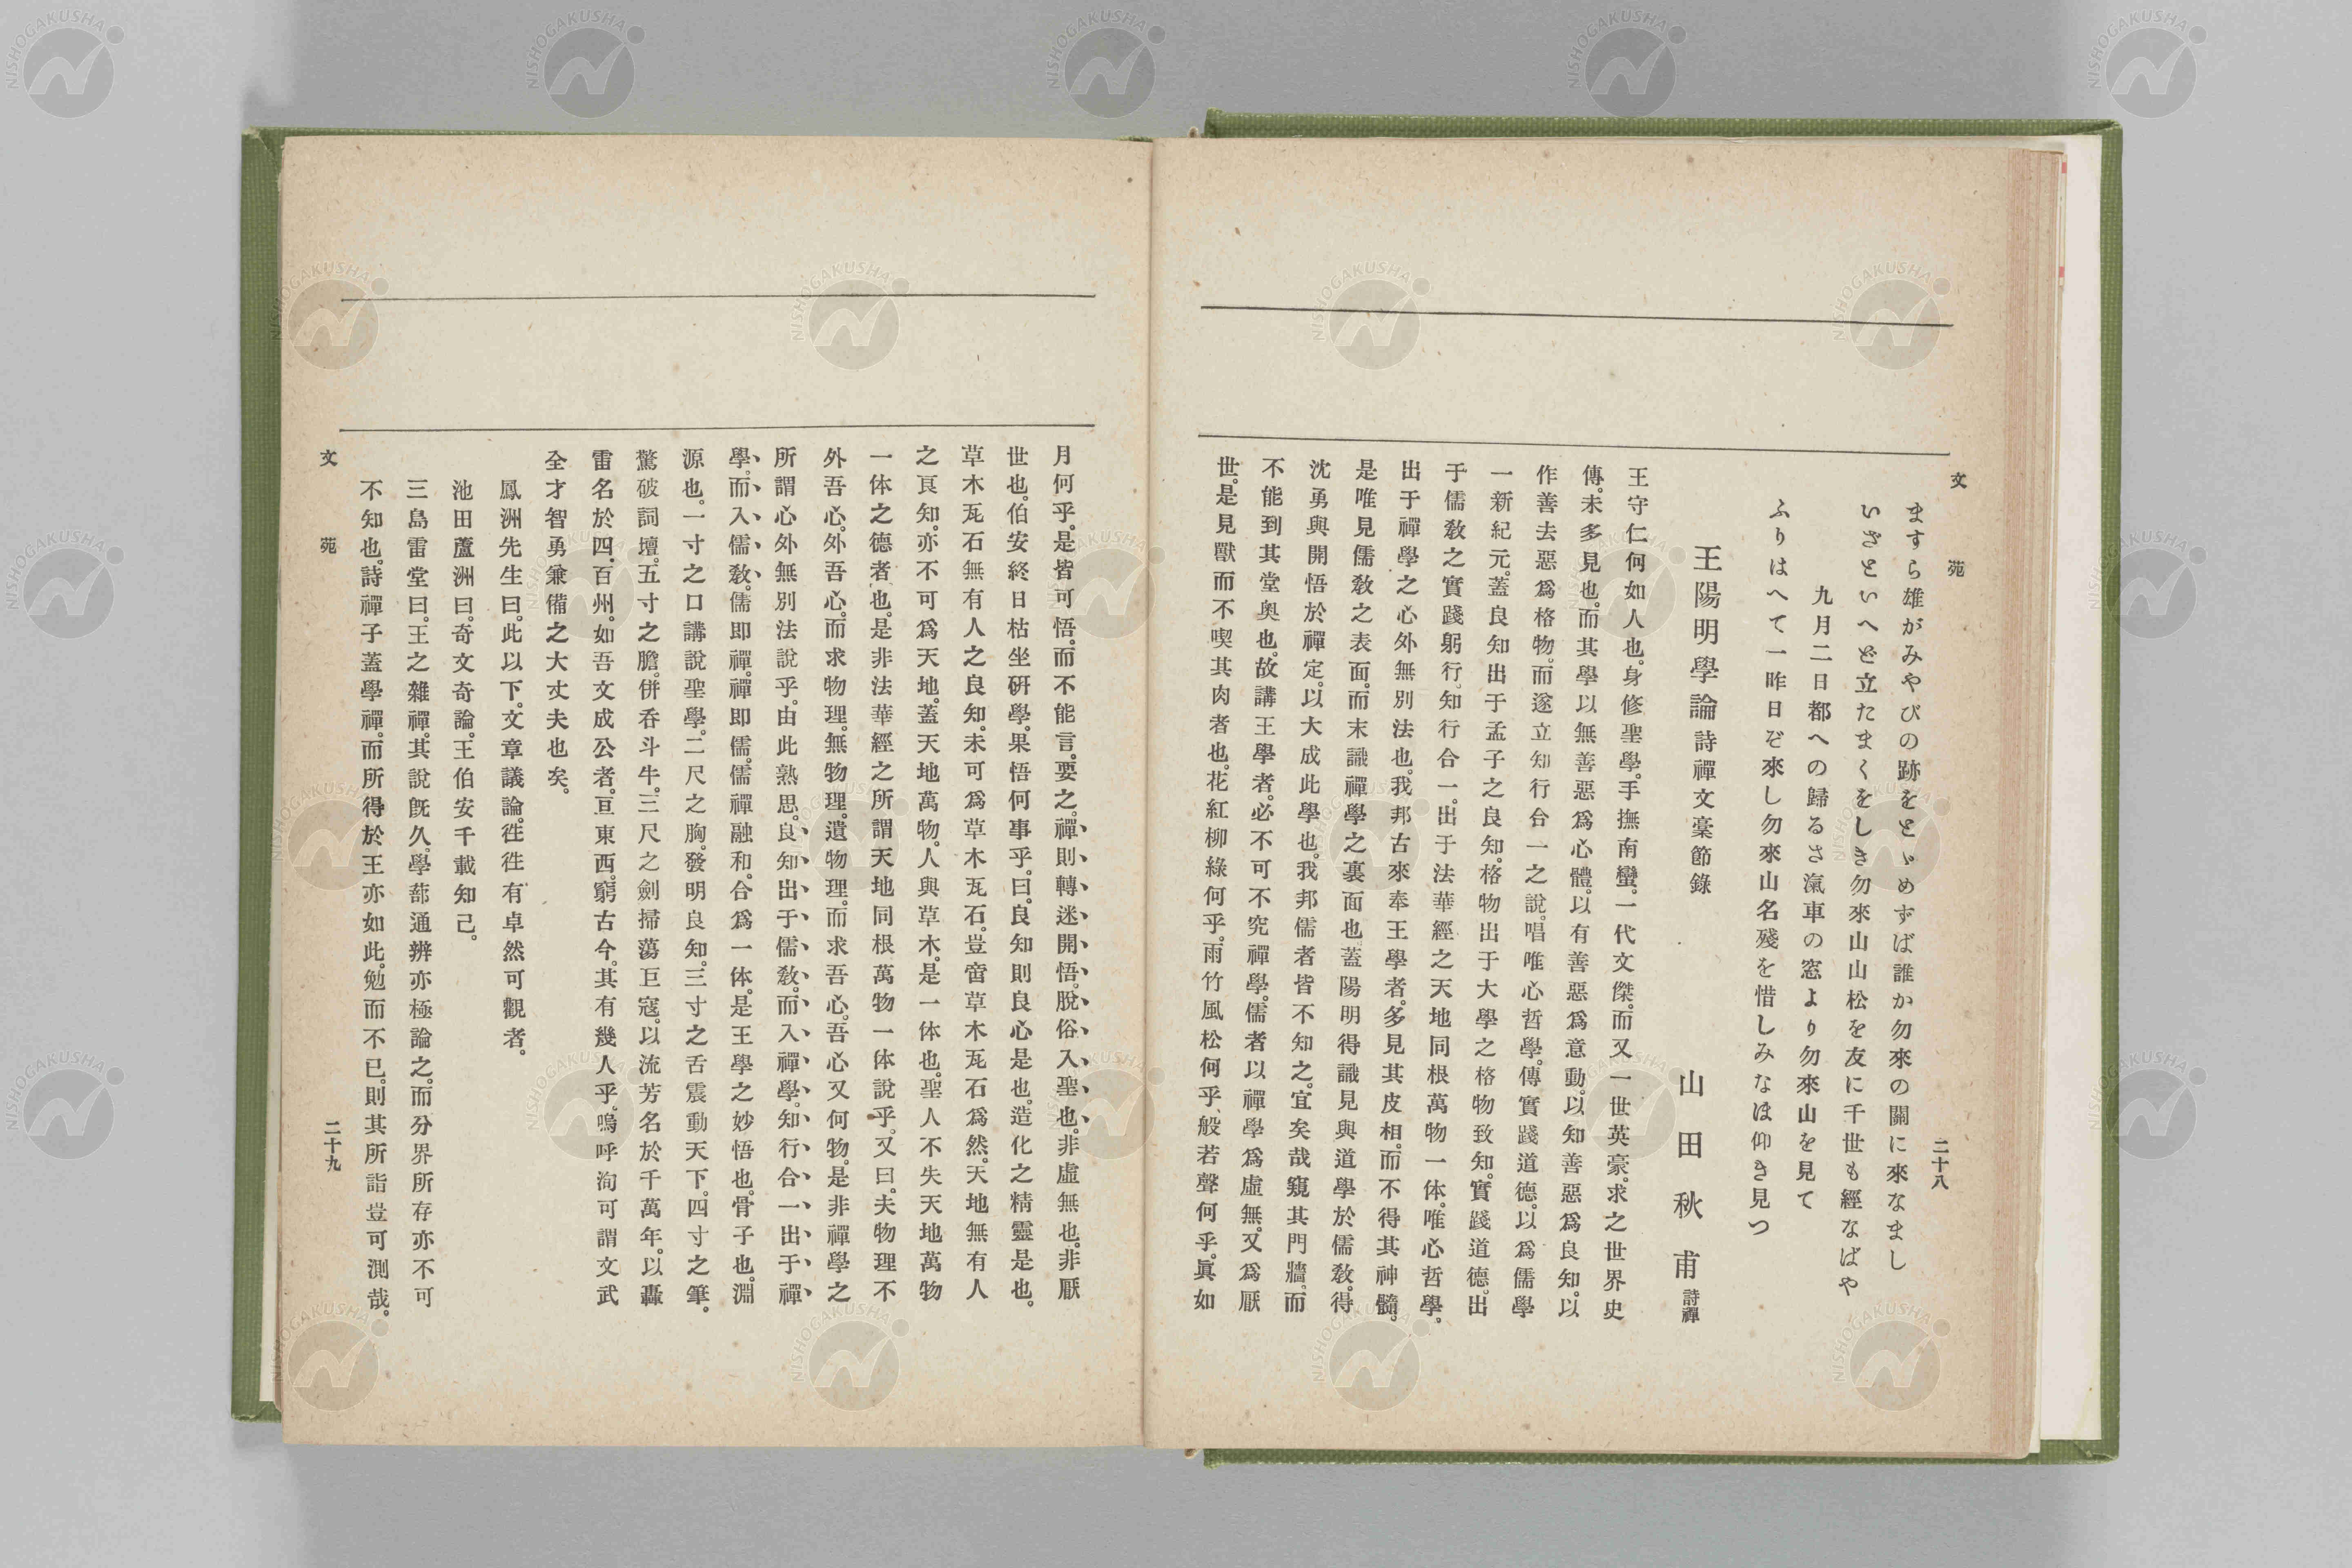 文苑
二十八
ますら雄がみやびの跡をとゞめずば誰か勿來の關に來なまし
いざといへど立たまくをしき勿來山山松を友に千世も經なばや
九月二日都への歸るさ滊車の窓より勿來山を見て
ふりはへて一昨日ぞ來し勿來山名殘を惜しみなほ仰き見つ
王陽明學論 詩禪文稾節錄 山田秋甫 詩禪
王守仁何如人也。身修聖學。手撫南蠻。一代文傑。而又一世英豪。求之世界史
傳。未多見也。而其學以無善惡爲心體。以有善惡爲意動。以知善惡爲良知。以
作善去惡爲格物。而遂立知行合一之說。唱唯心哲學。傳實踐道德。以爲儒學
一新紀元。蓋良知出于孟子之良知。格物出于大學之格物致知。實踐道德。出
于儒敎之實踐躬行。知行合一。出于法華經之天地同根萬物一体。唯心哲學。
出于禪學之心外無別法也。我邦古來奉王學者。多見其皮相。而不得其神髓。
是唯見儒敎之表面。而末識禪學之裏面也。蓋陽明得識見與道學於儒敎。得
沈勇與開悟於禪定。以大成此學也。我邦儒者皆不知之。宜矣哉窺其門牆。而
不能到其堂奥也。故講王學者。必不可不究禪學。儒者以禪學爲虛無。又爲厭
世。是見獸而不喫其肉者也。花紅柳綠何乎。雨竹風松何乎、般若聲何乎。眞如
月何乎。是皆可悟。而不能言。要之。禪則轉迷開悟。脫俗入聖也。非虛無也。非厭
世也。伯安終日枯坐硏學。果悟何事乎。曰。良知則良心是也。造化之精靈是也。
草木瓦石無有人之良知。未可爲草木瓦石。豈啻草木瓦石爲然。天地無有人
之良知。亦不可爲天地。蓋天地萬物。人與草木。是一体也。聖人不失天地萬物
一体之德者也。是非法華經之所謂天地同根萬物一体說乎。又曰。夫物理不
外吾心。外吾心。而求物理。無物理。遺物理。而求吾心。吾心又何物。是非禪學之
所謂心外無別法說乎。由此熟思。良知出于儒敎。而入禪學。知行合一出于禪
學。而入儒敎。儒卽禪。禪卽儒。儒禪融和。合爲一体。是王學之妙悟也。骨子也。淵
源也。一寸之口講說聖學。二尺之胸。發明良知。三寸之舌震動天下。四寸之筆。
驚破詞壇。五寸之膽。併呑斗牛。三尺之劍掃蕩巨寇。以流芳名於千萬年。以轟
雷名於四。百州。如吾文成公者。亘東西。窮古今。其有幾人乎。嗚呼洵可謂文武
全才智勇兼備之大丈夫也矣。
鳳洲先生曰。此以下。文章議論。徃徃有卓然可觀者。
池田蘆洲曰。奇文奇論。王伯安千載知己。
三島雷堂曰。王之雜禪。其說旣久。學蔀通辨亦極論之。而分界所存亦不可
不知也。詩禪子蓋學禪。而所得於王亦如此。勉而不已。則其所詣豈可測哉。
文苑
二十九